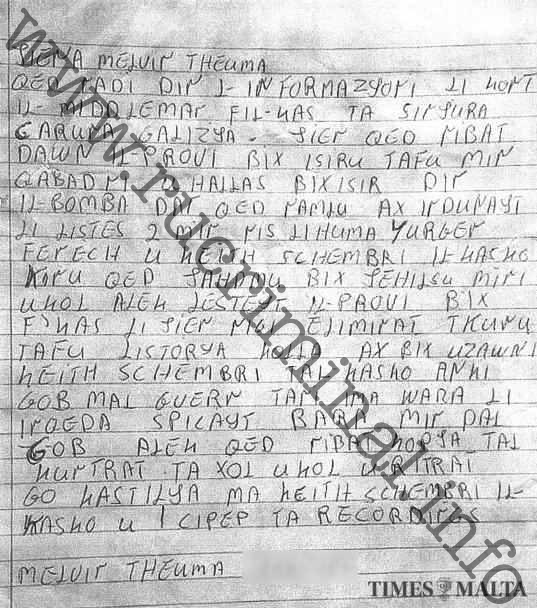 JIENA MELVIN THEUMA
QED NADI DIN L-INFORMAZYONI LI KONT
IL-MIDDLEMAN FIL-KAS TA SINJURA
CARUNA GALIZYA. JIEN QED NIBAT
DAWN IL-PROVI BIX ISIRU TAFU MIN
QABADNI U HALLAS BIX ISIR DIN
IL-BOMBA DAN QED NAMLU AX INDUNAYT
LI LISTES 2 MIN NIS LI HUMA YURGEN
FENECH U KEITH SCHEMBRI IL-KASKO
KINU QED JAHDMU BIX JEHILSU MINI
U KOL ALEK LESTEYT IL-PROVI BIX
F'KAS LI JIEN NIGI ELIMINAT TKUNU
TAFU LISTORYA KOLLA AX BIX UZAWNI
KEITH SCHEMBRI IL-KASKO ANKI
GOB MAL GVERN TANI IMA WARA LI
INQEDA SPICAYT BARA MIN DAL
GOB ALEK QED NIBAT KOPYA TAL
KUNTRAT TA XOL U KOL U RITRAT
GO KASTILYA MA KEITH SCHEMBRI IL-
KASKO U 1 CIPEP TA RECORDINGS
MELVIN THEUMA
TIMES OF MALTA
www.rucriminal.info